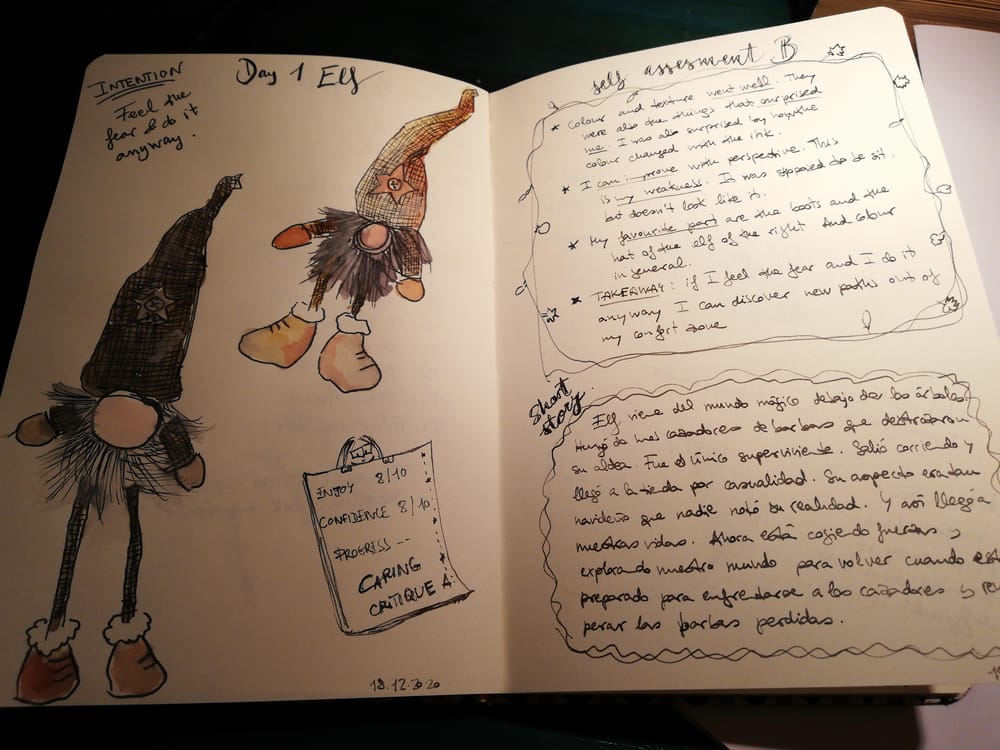 INTENTION
Feel the
fear & do it
anyway.
Day 1 Elf
ENJOY 8/10
CONFIDENCE 8/10
PROGRESS --
CARING
CRITIQUE A:
18.12.2020
self assesment B
* Colour and texture went well. They
were also the things that surprised
me. I was also surprised by how the
colour changed with the ink.
* I can improve with perspective. This
is my weakness. It was supposed to be sit.
but doesn't look like it.
* My favourite part are the boots and the
hat of the elf of the right. And colour
in general.
* TAKEAWAY: if I feel the fear and I do it
anyway I can discover new paths out of
my confort zone
Short
story.
Elf viene del mundo mágico debajo de los árboles.
Huyó de los cazadores de barbas que destrozaron
su aldea. Fue el único superviviente. Salió corriendo y
llegó a la tienda por casualidad. Su aspecto era tan
navideño que nadie notó su realidad. Y así llegó a
nuestras vidas. Ahora está cogiendo fuerzas y
explorando nuestro mundo para volver cuando esté
preparado para enfrentarse a los cazadores y
perar las barbas perdidas.